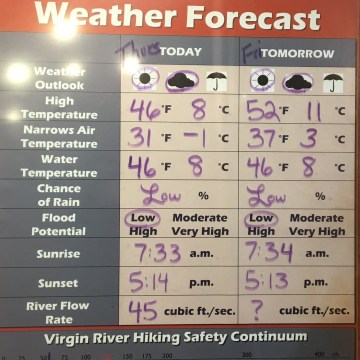 Weather Forecast
Thurs TODAY Fri TOMORROW
Weather Outlook
High Temperature 46 °F 8 °C 52 °F 11 °C
Narrows Air Temperature 31 °F -1 °C 37 °F 3 °C
Water Temperature 46 °F 8 °C 46 °F 8 °C
Chance of Rain Low % Low %
Flood Potential Low Moderate High Very High Low Moderate High Very High
Sunrise 7:33 a.m. 7:34 a.m.
Sunset 5:14 p.m. 5:13 p.m.
River Flow Rate 45 cubic ft./sec. ? cubic ft./sec.
Virgin River Hiking Safety Continuum
150 175 300